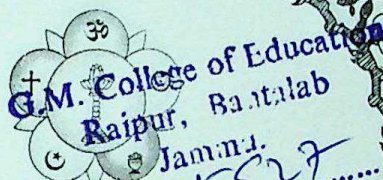 ॐ
G.M. College of Education
Raipur, Bantalab
Jammu.